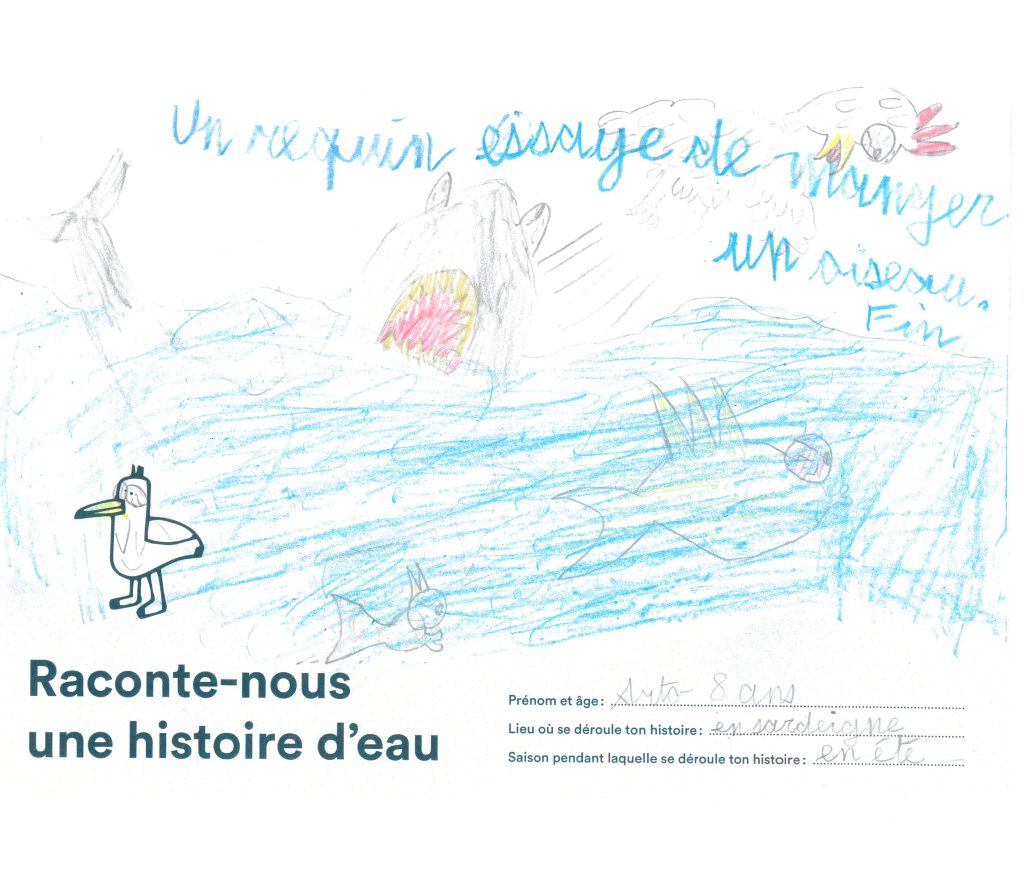 Un requin éssaye de manger
un oiseau.
Fin
Raconte-nous
une histoire d'eau
Prénom et âge : 8 ans
Lieu où se déroule ton histoire : en sardeigne
Saison pendant laquelle se déroule ton histoire : en été